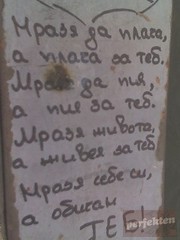 Мразя да плача,
а плача за теб.
Мразя да пия,
а пия за теб.
Мразя живота,
а живея за теб
Мразя себе си,
а обичам
ТЕБ!
perfekten